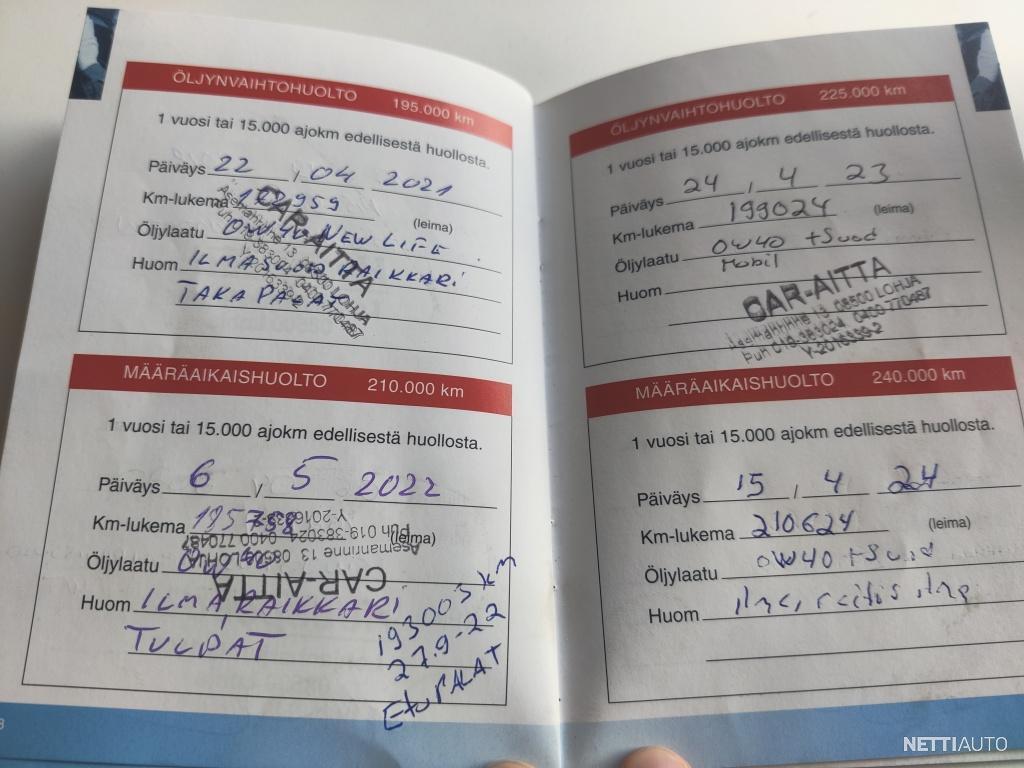 ÖLJYNVAIHTOHUOLTO 195.000 km
1 vuosi tai 15.000 ajokm edellisestä huollosta.
Päiväys 22 / 04 2021
Km-lukema 959
(leima)
Öljylaatu 0W40 NEW LIFE
Huom ILMA RAIKKARI
TAKA PALAT
CAR-AITTA
LOHJA
MÄÄRÄAIKAISHUOLTO 210.000 km
1 vuosi tai 15.000 ajokm edellisestä huollosta.
Päiväys 6 / 5 2022
Km-lukema
(leima)
Öljylaatu
Huom ILMA, RAIKKARI
TULPAT
CAR-AITTA
Asemarinne 13 08500 LOHJA
Puh 019-383024 0400 770487
193003 km
27.9-22
EtuPALAT
8
ÖLJYNVAIHTOHUOLTO 225.000 km
1 vuosi tai 15.000 ajokm edellisestä huollosta.
Päiväys 24 / 4 23
Km-lukema 199024
(leima)
Öljylaatu 0W40 + Suod
Mobil
Huom
CAR-AITTA
13 08500 LOHJA
Puh 019-383024 0400-770487
MÄÄRÄAIKAISHUOLTO 240.000 km
1 vuosi tai 15.000 ajokm edellisestä huollosta.
Päiväys 15 / 4 24
Km-lukema 210624
(leima)
Öljylaatu 0W40 + Suod
Huom
NETTIAUTO